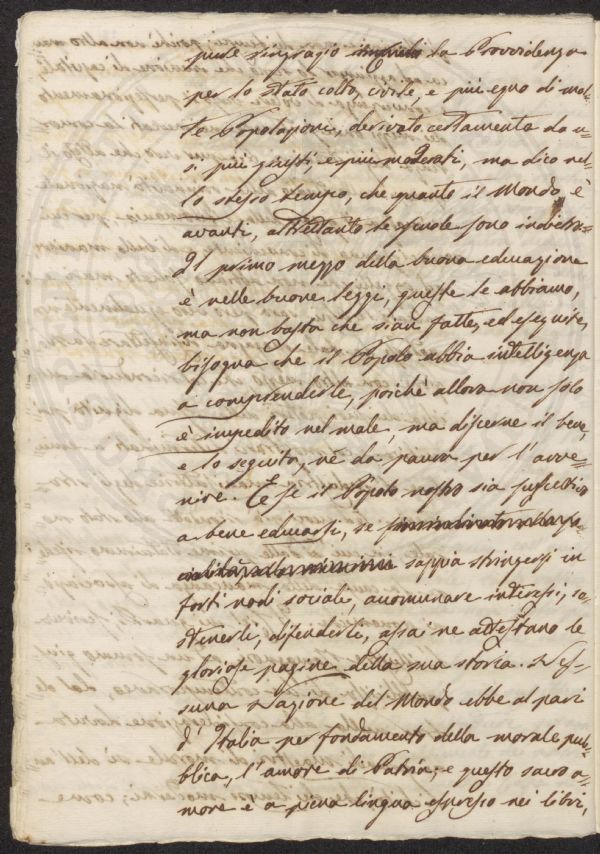 pure ringrazio la Provvidenza
per lo stato colto, civile, e più equo di mol-
te Popolazioni, derivato certamente da u-
si più giusti, e più moderati, ma dico nel-
lo stesso tempo, che quanto il Mondo è
avanti, altrettanto le scuole sono indietro.
Il primo mezzo della buona educazione
è nelle buone leggi, queste le abbiamo,
ma non basta che sian fatte, ed eseguite,
bisogna che il Popolo abbia intelligenza
a comprenderle, poichè allora non solo
è impedito nel male, ma discerne il bene,
e lo seguita, nè dà paura per l'avve-
nire. E se il Popolo nostro sia suscettivo
a bene educarsi, se
sappia stringersi in
forti nodi sociali, accomunare interessi, so-
stenerli, difenderli, assai ne attestano le
gloriose pagine della sua storia. Nes-
suna Nazione del Mondo ebbe al pari
d'Italia per fondamento della morale pub-
blica, l'amore di Patria; e questo sacro a-
more è a piena lingua espresso nei libri,